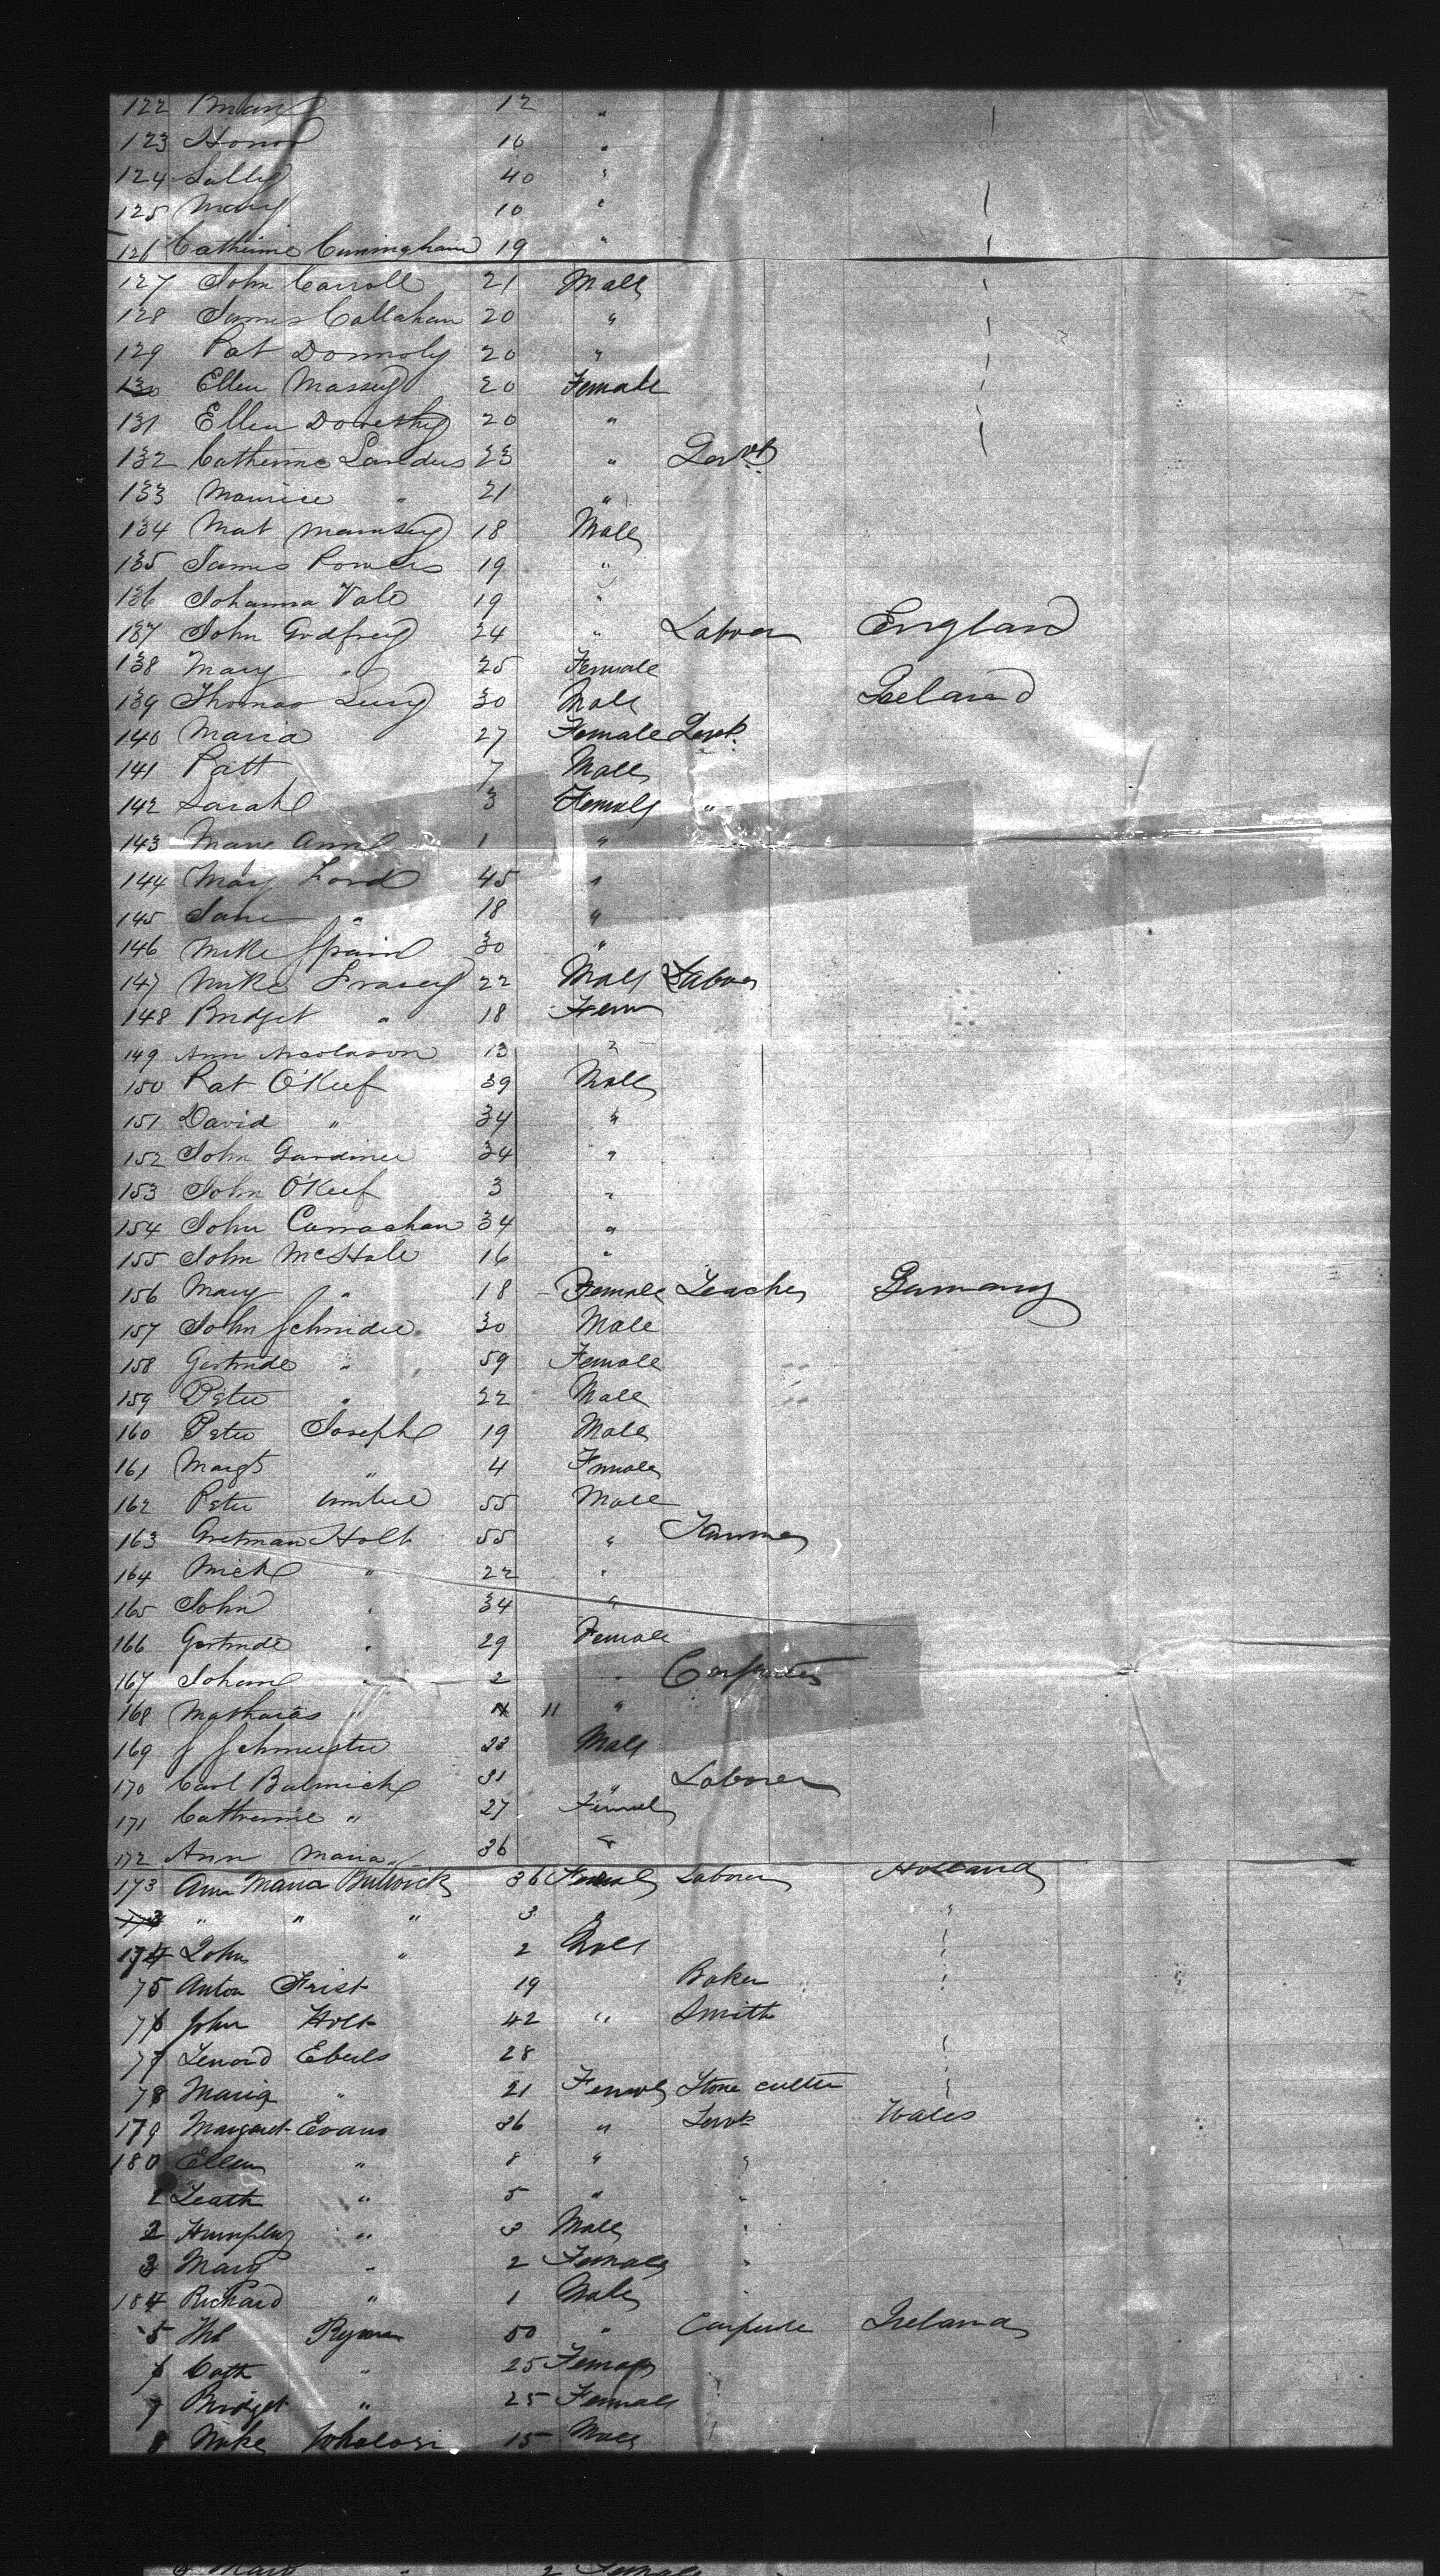 122 Brian 12 "
123 Honor 16 "
124 Sally 40 "
125 Mary 10 "
126 Catherine Cuningham 19 "
127 John Carroll 21 Male
128 James Callahan 20 "
129 Pat Donnoly 20 "
130 Ellen Massey 20 Female
131 Ellen 20 "
132 Catherine Landers 23 " Servt
133 Maurice " 21 "
134 Mat 18 Male
135 James Powers 19 "
136 Johanna Vale 19 "
137 John Godfrey 24 " Labor England
138 Mary " 25 Female
139 Thomas 30 Male Ireland
140 Maria 27 Female Servt
141 Patt 7 Male
142 Sarah 3 Female "
143 Mary Ann 1 "
144 Mary Ford 45 "
145 Jane " 18 "
146 Mike Spain 30 "
147 Mike 22 Male Labor
148 Bridget " 18 Fem
149 Ann 13 "
150 Pat O'Keef 39 Male
151 David " 34 "
152 John Gardiner 34 "
153 John O'Keef 3 "
154 John 34 "
155 John McHale 16 "
156 Mary " 18 Female Teacher Germany
157 John Schnider 30 Male
158 Gertrude " 59 Female
159 Peter " 22 Male
160 Peter Joseph 19 Male
161 Margt " 4 Female
162 Peter 55 Male
163 Holt 55 " Farmer
164 Mich " 22 "
165 John " 34 "
166 Gertrude " 29 Female
167 Johann " 2 " Carpenter
168 Mathaias " 11 "
169 J Schmeister 23 Male
170 Carl 31 " Laborer
171 Catherine " 27 Female
172 Ann Maria " 36 "
173 Ann Maria 36 Female Laborer Holland
" " " 3 "
174 John " 2 Male
75 Anton Frist 19 Baker
76 John Holt 42 " Smith
77 Lenord Ebels 28
78 Maria " 21 Female Stone cutter
179 Margaret Evans 36 " Servt Wales
180 Ellen " 8 " "
1 Leath " 5 " "
2 Humphry " 3 Male "
3 Mary " 2 Female "
184 Richard " 1 Male "
5 Ryan 50 " Carpente Ireland
6 Cath " 25 Female
7 Bridget " 25 Female
8 Mike 15 Male
Mary " 2 Female